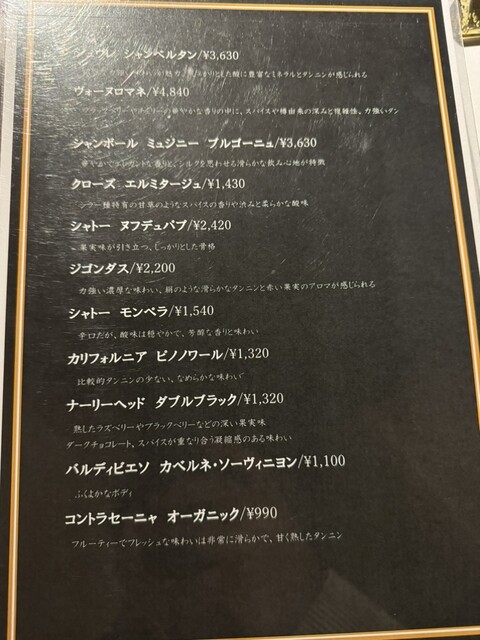 ジュヴレ シャンベルタン/¥3,630
酸に豊富なミネラルとタンニンが感じられる
ヴォーヌロマネ/¥4,840
華やかな香りの中に、スパイスや樽由来の深みと複雑性、力強いタン
シャンボール ミュジニー ブルゴーニュ/¥3,630
華やかでエレガントな香りと、シルクを思わせる滑らかな飲み心地が特徴
クローズ エルミタージュ/¥1,430
シラー種特有の甘草のようなスパイスの香りや渋みと柔らかな酸味
シャトー ヌフデュパプ/¥2,420
果実味が引き立つ、しっかりとした骨格
ジゴンダス/¥2,200
力強い濃厚な味わい、絹のような滑らかなタンニンと赤い果実のアロマが感じられる
シャトー モンペラ/¥1,540
辛口だが、酸味は穏やかで、芳醇な香りと味わい
カリフォルニア ピノノワール/¥1,320
比較的タンニンの少ない、なめらかな味わい
ナーリーヘッド ダブルブラック/¥1,320
熟したラズベリーやブラックベリーなどの深い果実味
ダークチョコレート、スパイスが重なり合う凝縮感のある味わい
バルディビエソ カベルネ・ソーヴィニヨン/¥1,100
ふくよかなボディ
コントラセーニャ オーガニック/¥990
フルーティーでフレッシュな味わいは非常に滑らかで、甘く熟したタンニン